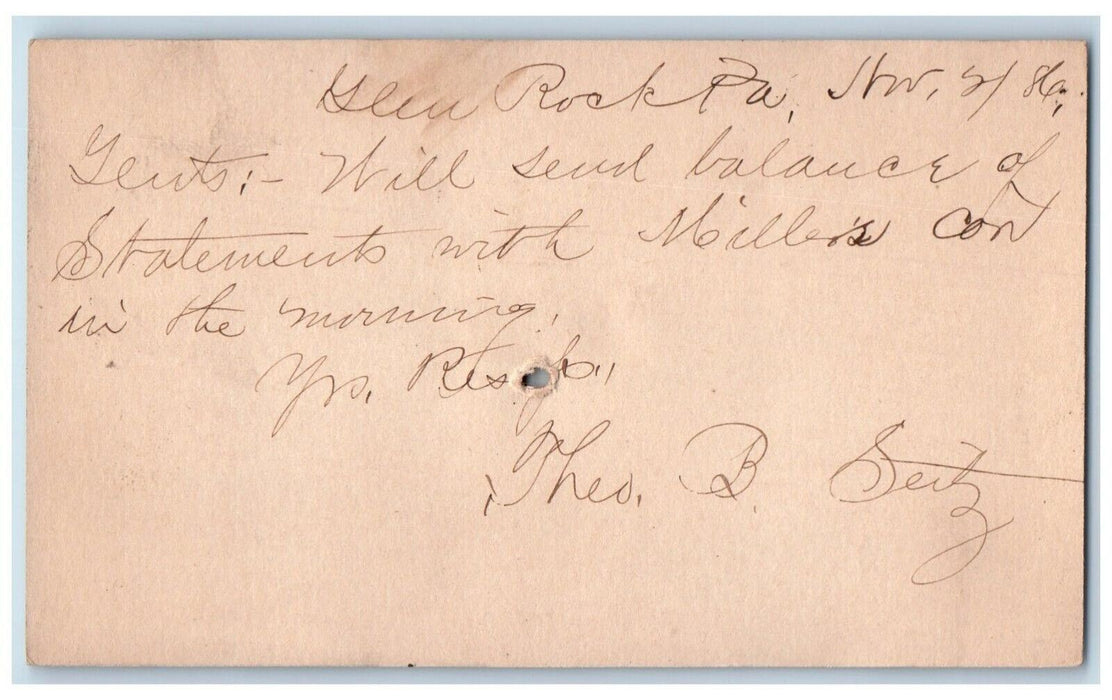 Glen Rock Pa, Nov, 2/ 86,
Gents:- Will send balance of
Statements with Miller's
in the morning,
Yrs. Resp.,
Theo. B. Seitz